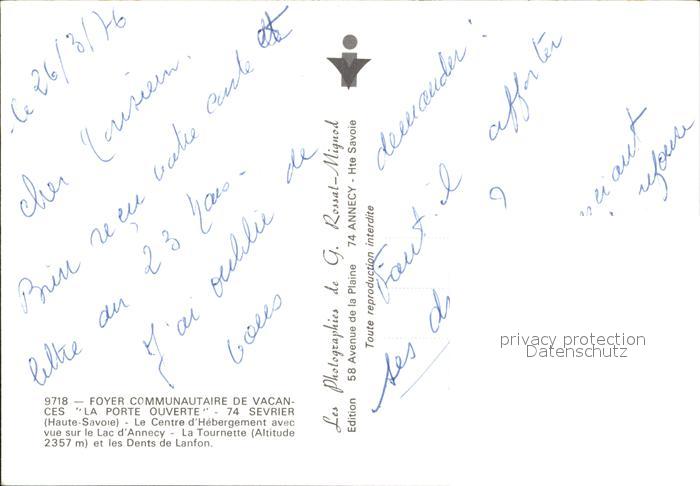 le 26/3/76
cher Monsieur.
Bien reçu votre carte et
lettre du 23 Mars.
J'ai oublié de
vous
demander :
Faut-il apporter
ses
?
9718 — FOYER COMMUNAUTAIRE DE VACAN-
CES "LA PORTE OUVERTE" - 74 SEVRIER
(Haute-Savoie) - Le Centre d'Hébergement avec
vue sur le Lac d'Annecy - La Tournette (Altitude
2357 m) et les Dents de Lanfon.
Les Photographies de G. Rossat-Mignod
Edition 58 Avenue de la Plaine 74 ANNECY - Hte Savoie
Toute reproduction interdite
privacy protection
Datenschutz